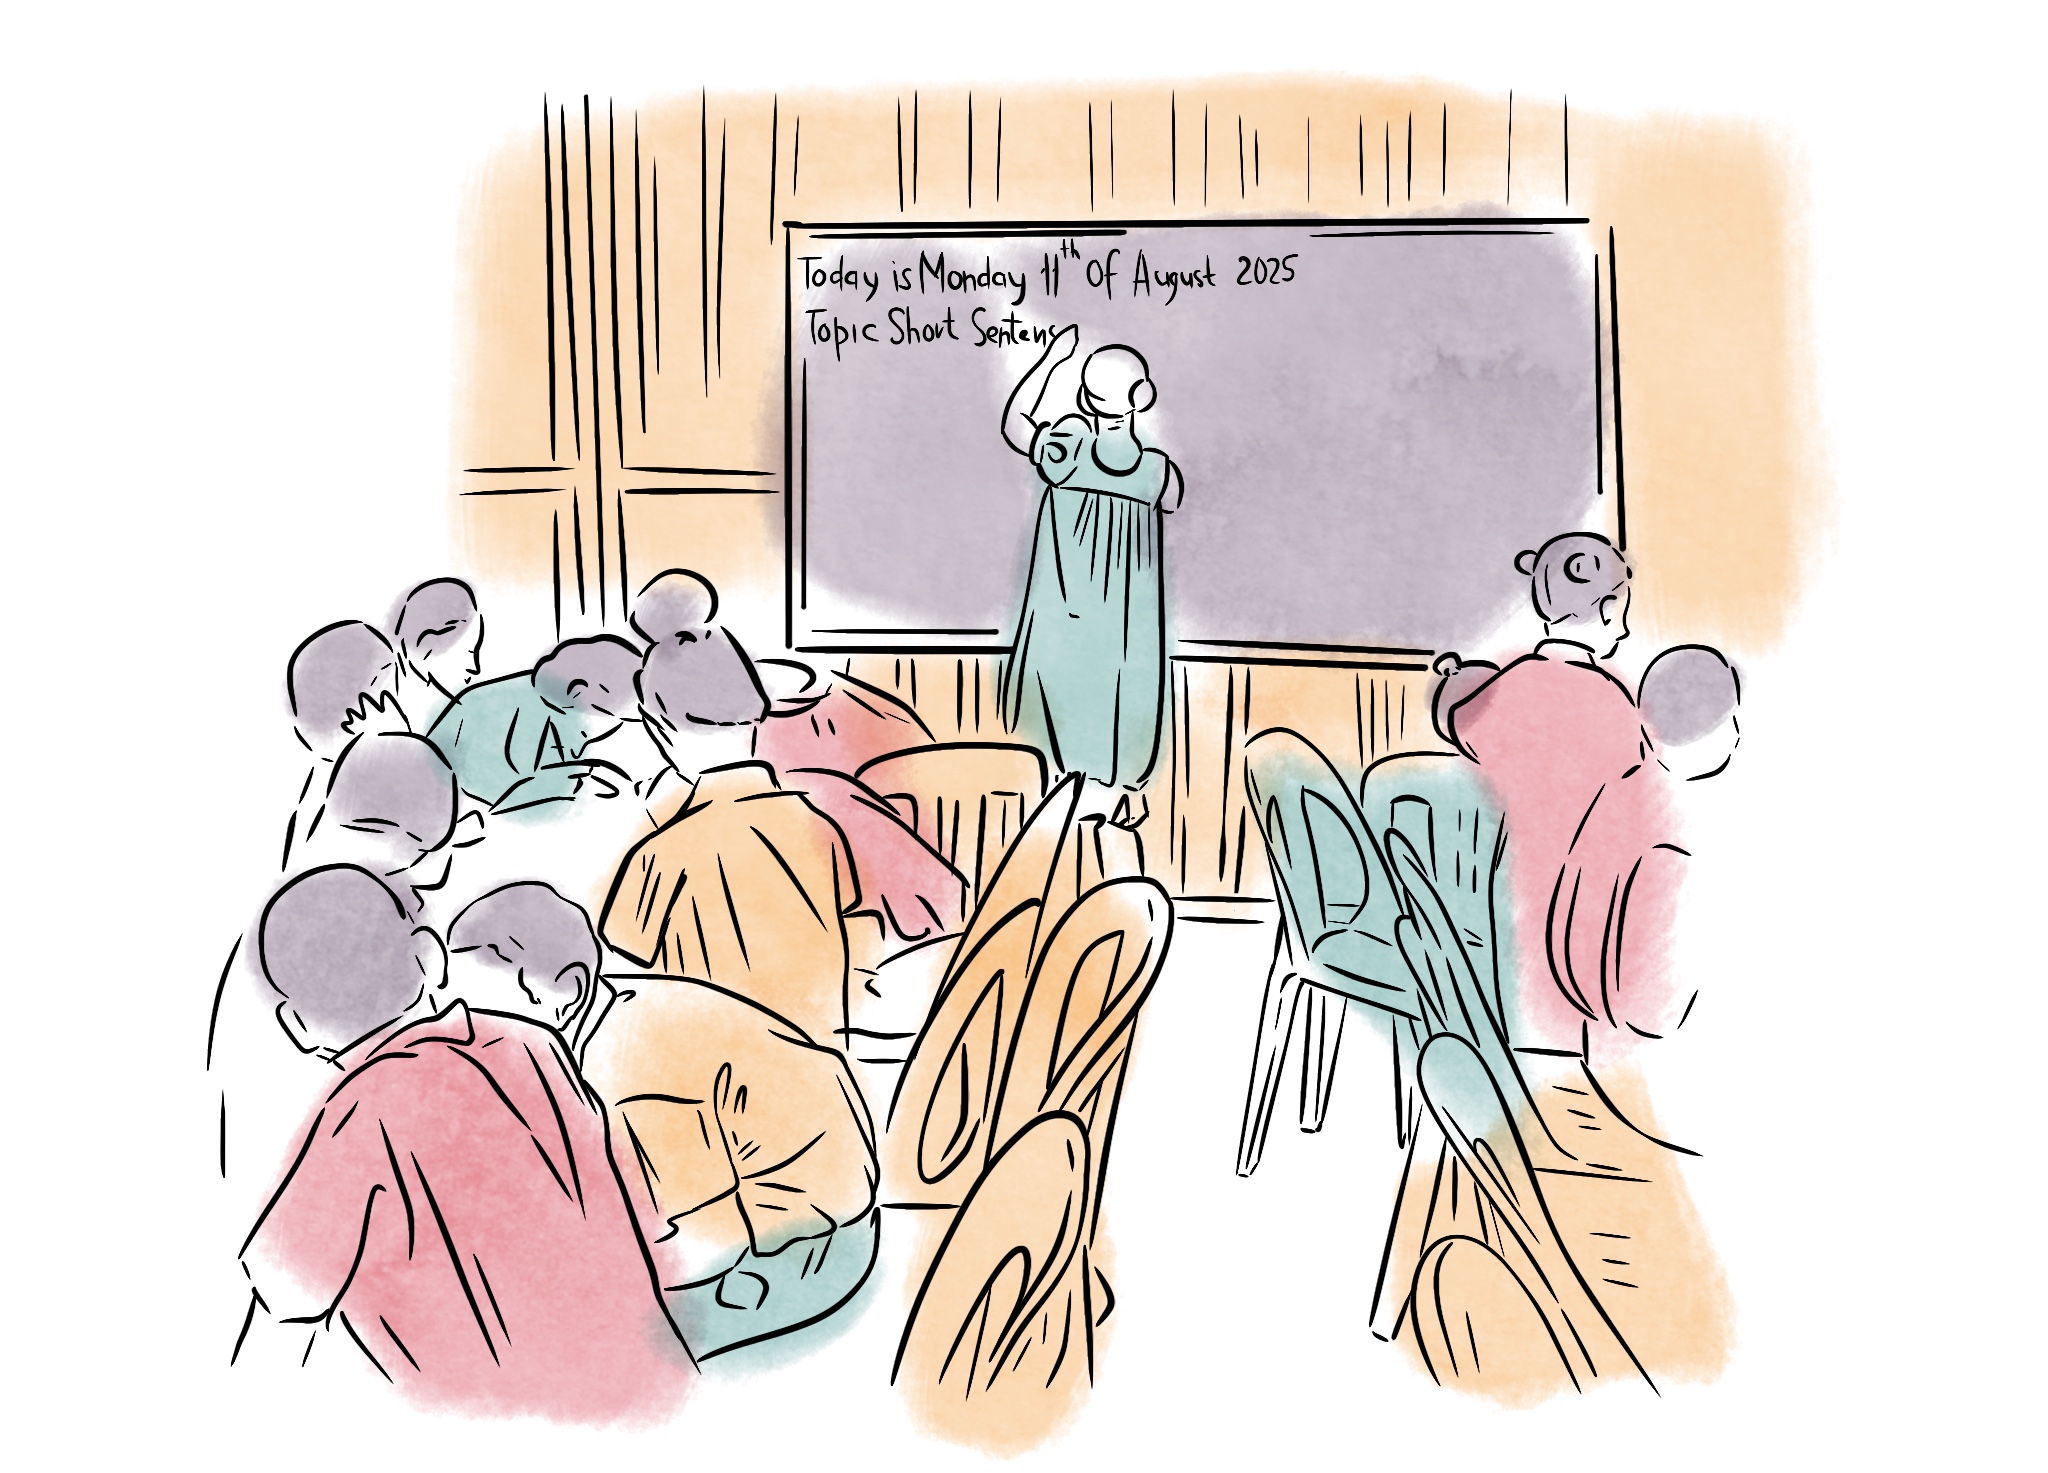 Today is Monday 11th Of August 2025
Topic Short Sentens